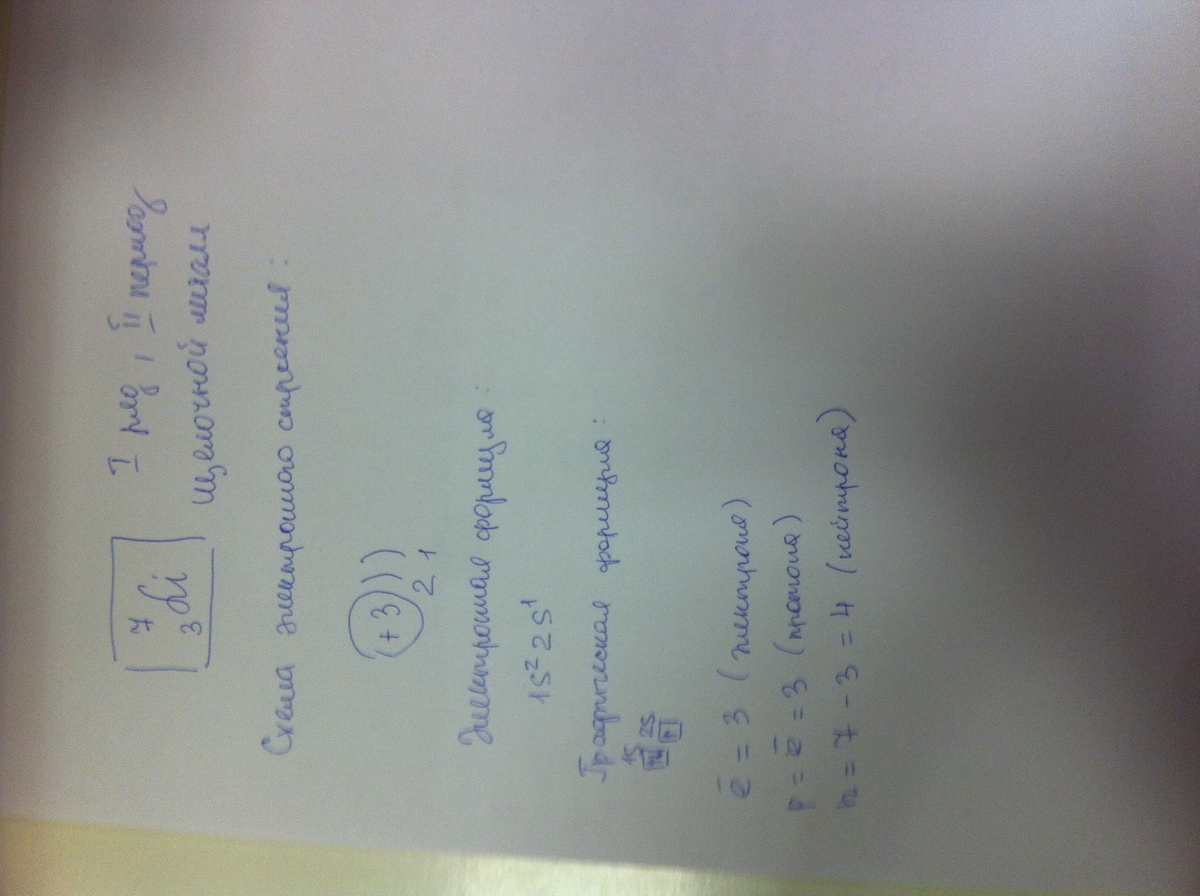 7
3 Li
I ряд, II период
Щелочной металл
Схема электронного строения:
+3 ) ) )
2 1
Электронная формула:
1s² 2s¹
Графическая формула:
1s 2s
↑↓ ↑
e̅ = 3 (электрона)
p = e̅ = 3 (протона)
n = 7 - 3 = 4 (нейтрона)